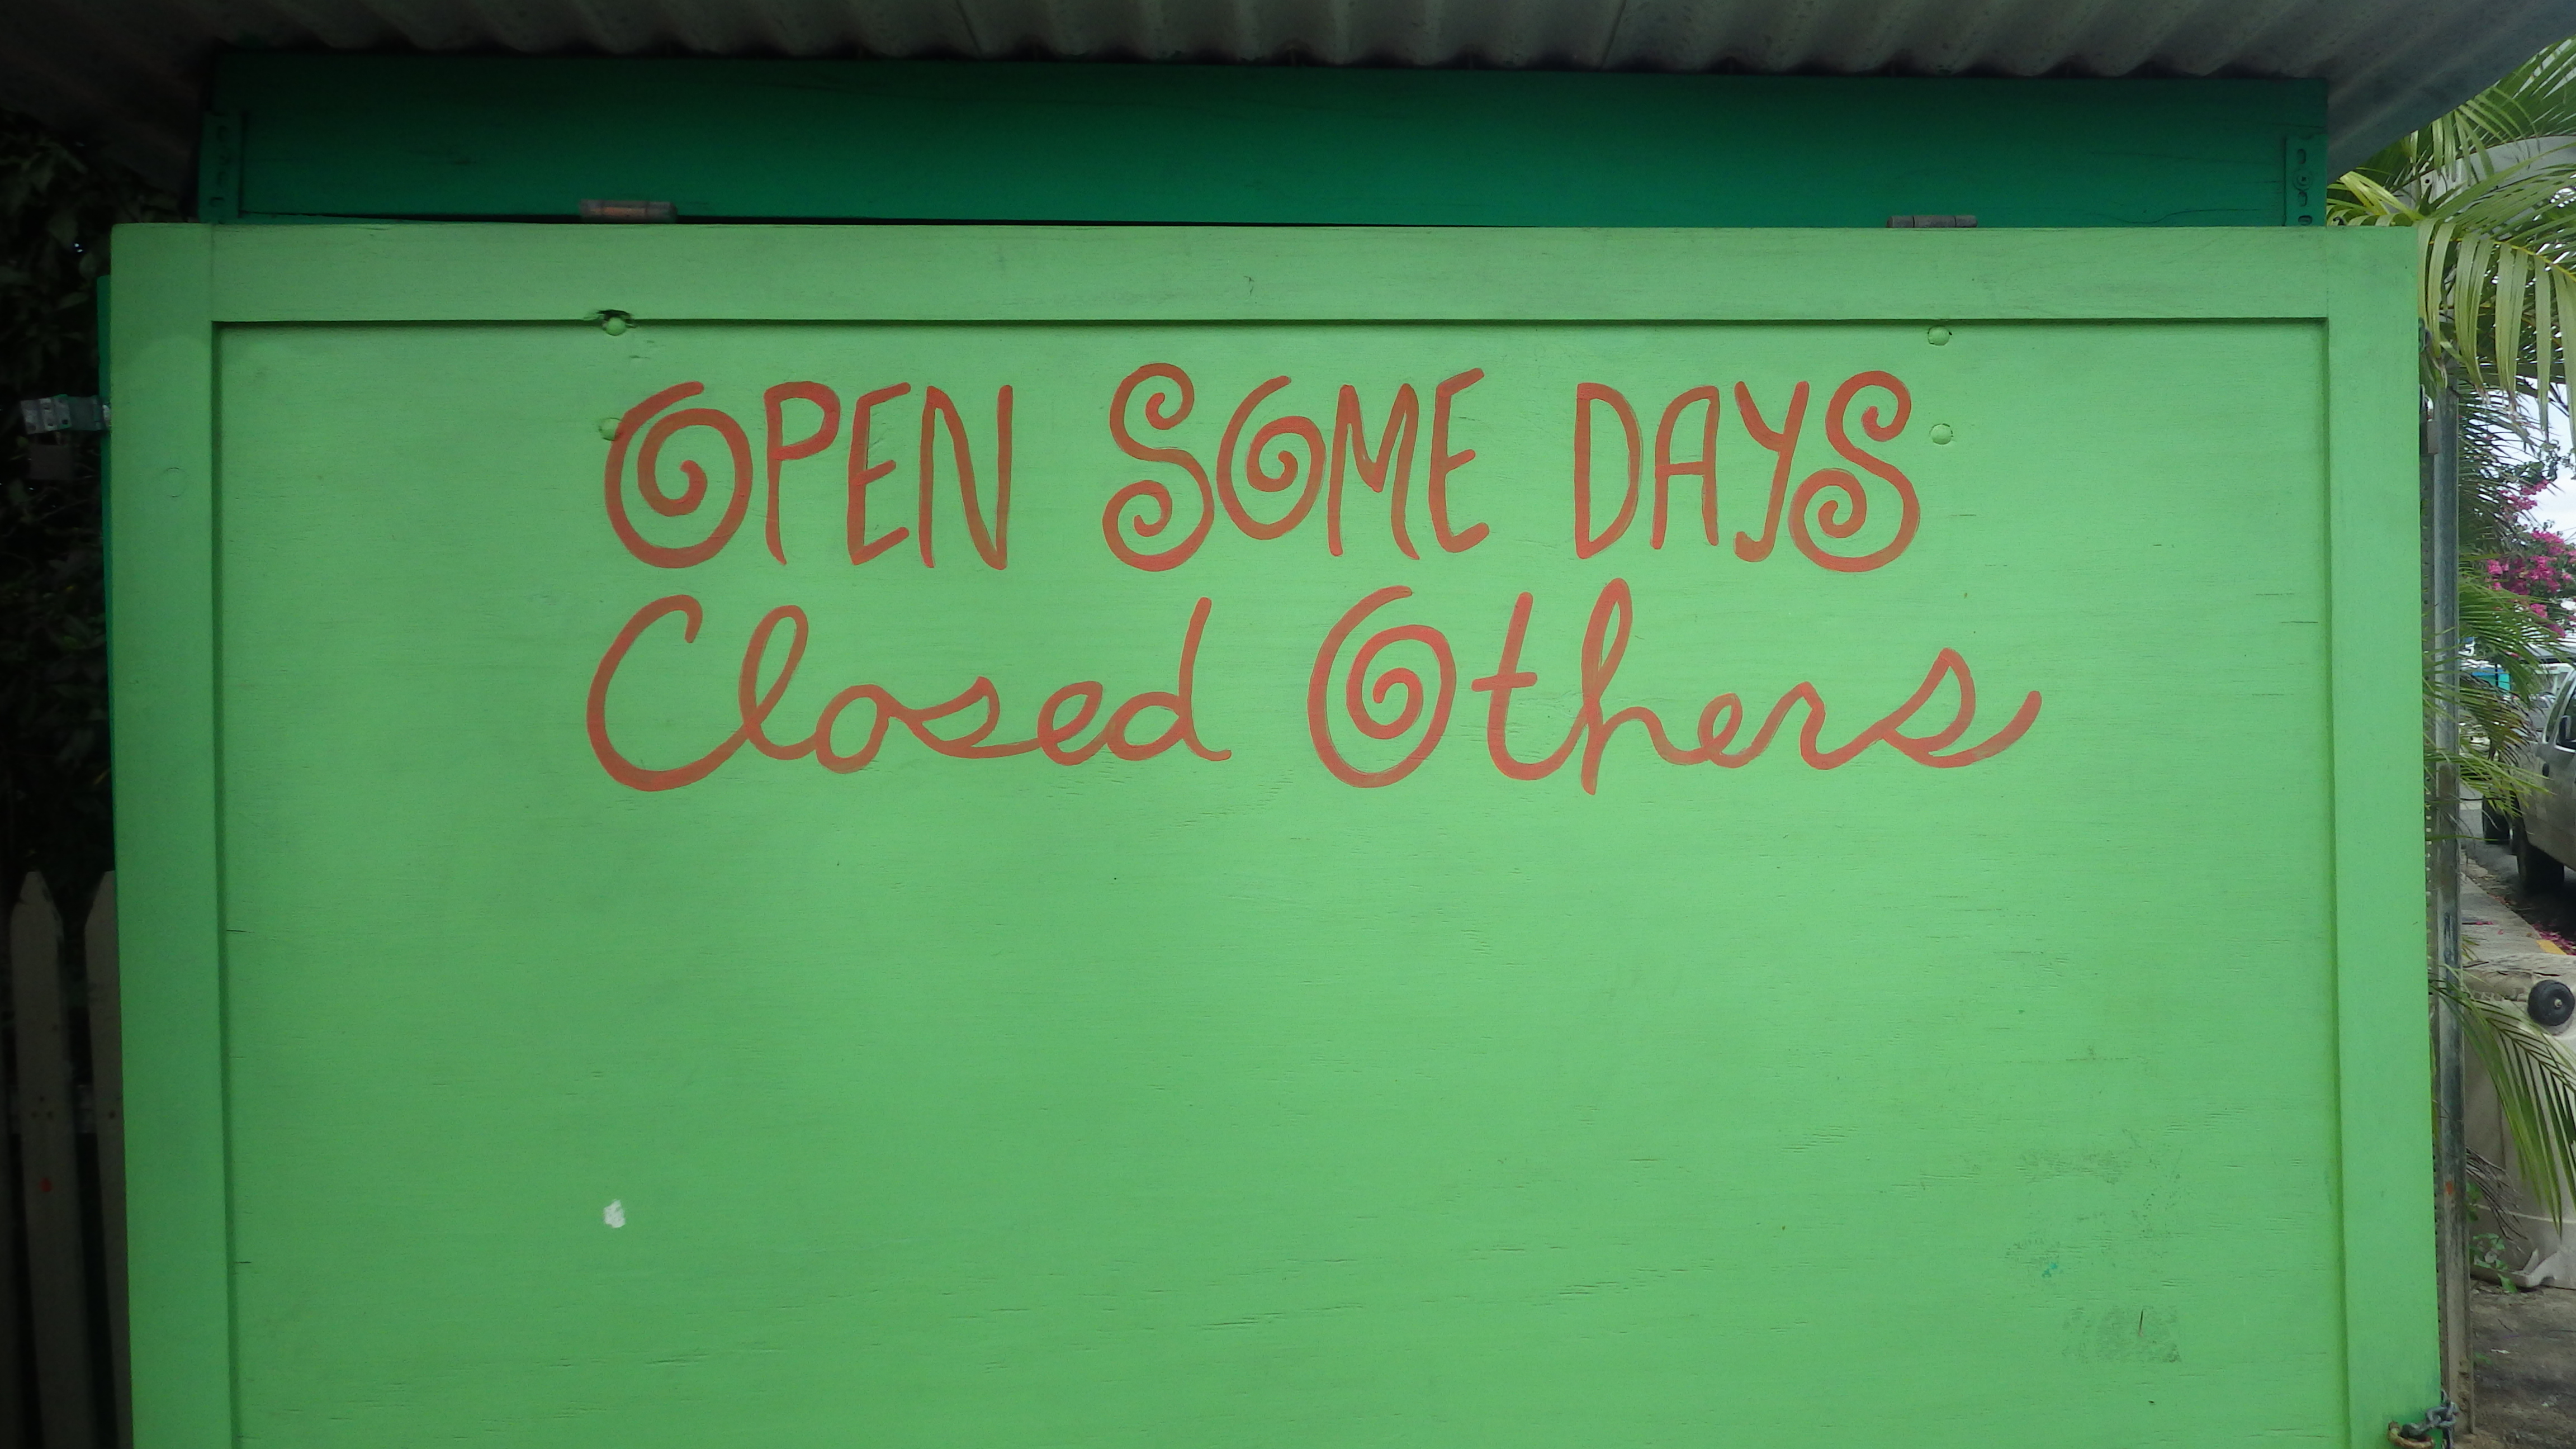 OPEN SOME DAYS
Closed Others